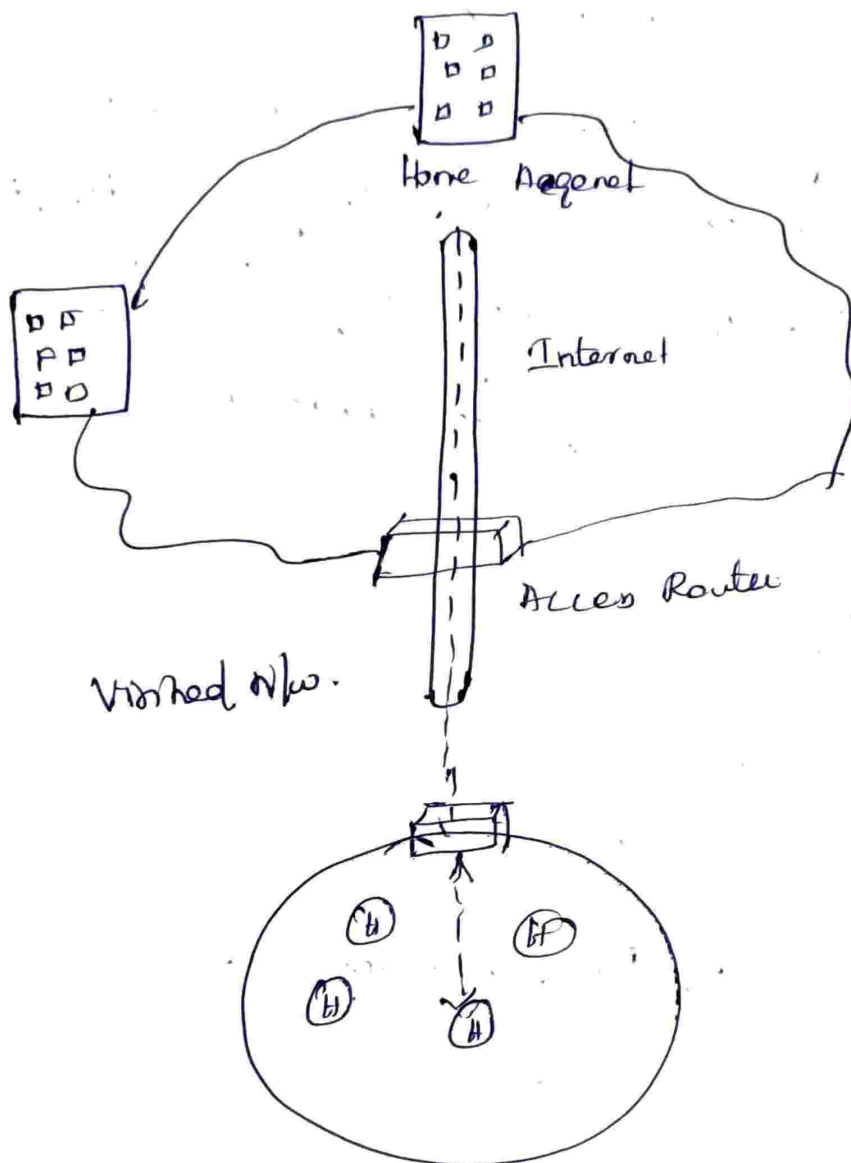 Home Aegenet
Internet
Acces Router
Visited N/w.
H
H
H